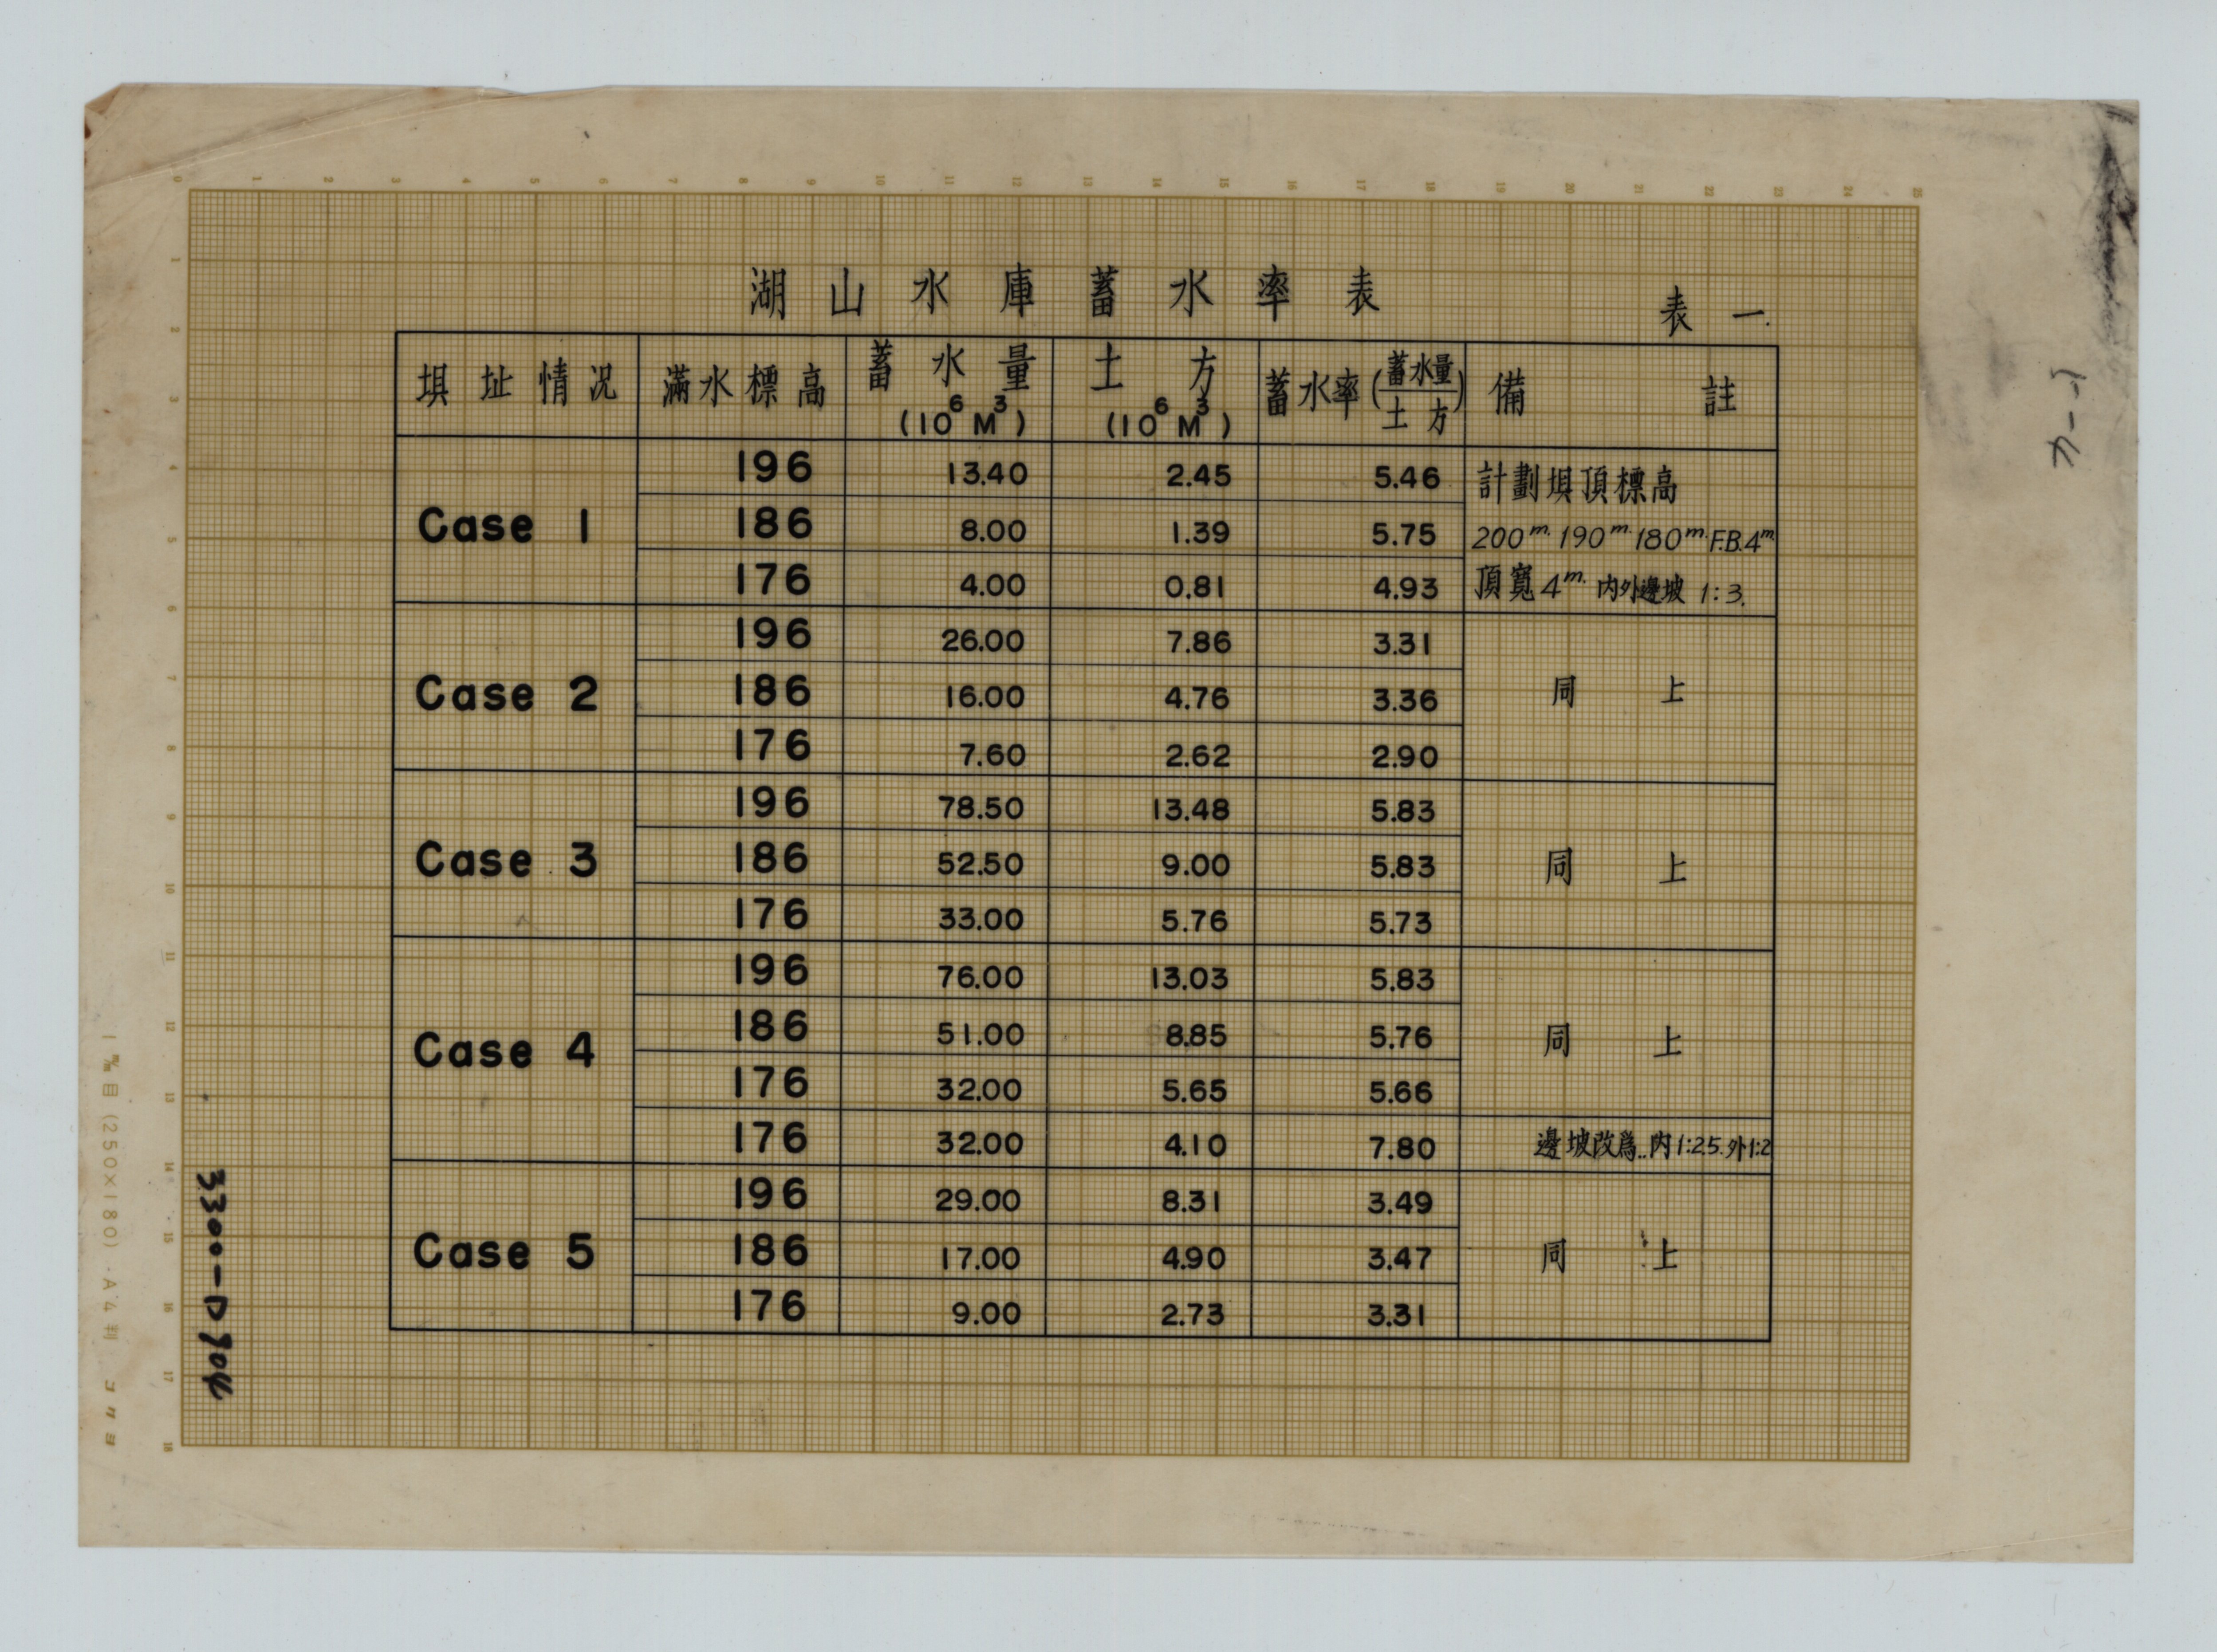 湖山水庫蓄水率表
表一.
埧址情況 滿水標高 蓄水量(10⁶M³) 土方(10⁶M³) 蓄水率(蓄水量/土方) 備註
Case 1 196 13.40 2.45 5.46 計劃埧頂標高
186 8.00 1.39 5.75 200m. 190m. 180m. F.B.4m.
176 4.00 0.81 4.93 頂寬4m. 內外邊坡 1:3.
Case 2 196 26.00 7.86 3.31
186 16.00 4.76 3.36 同上
176 7.60 2.62 2.90
Case 3 196 78.50 13.48 5.83
186 52.50 9.00 5.83 同上
176 33.00 5.76 5.73
Case 4 196 76.00 13.03 5.83
186 51.00 8.85 5.76 同上
176 32.00 5.65 5.66
176 32.00 4.10 7.80 邊坡改爲..內1:2.5.外1:2
Case 5 196 29.00 8.31 3.49
186 17.00 4.90 3.47 同上
176 9.00 2.73 3.31
0 1 2 3 4 5 6 7 8 9 10 11 12 13 14 15 16 17 18 19 20 21 22 23 24 25
1 2 3 4 5 6 7 8 9 10 11 12 13 14 15 16 17 18
1㎜目 (250×180)・A4判 コクヨ
3300-D904